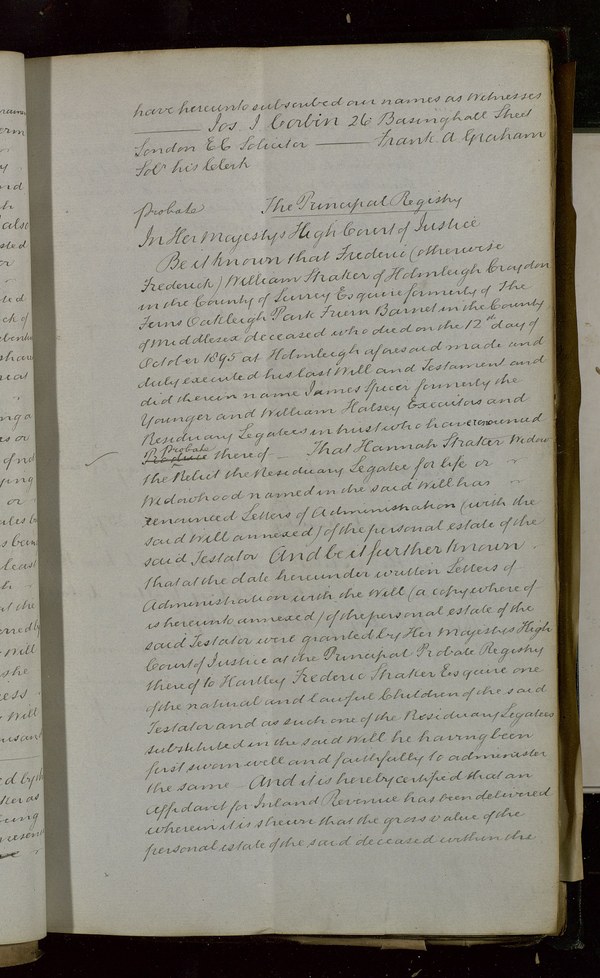 have hereunto subscribed our names as Witnesses
——— Jos. J Corbin 26 Basinghall Street
London EC Solicitor ——— Frank A Graham
Solr his Clerk
Probate The Principal Registry
In Her Majestys High Court of Justice
Be it known that Frederic (otherwise
Frederick) William Straker of Holmleigh Croydon
in the County of Surrey Esquire formerly of The
Ferns Oakleigh Park Friern Barnet in the County
of Middlesex deceased who died on the 12th day of
October 1895 at Holmleigh aforesaid made and
duly executed his last Will and Testament and
did therein name James Spicer formerly the
Younger and William Halsey Executors and
Residuary Legatees in trust who have renounced
Probate
thereof — That Hannah Straker Widow
the Relict the Residuary Legatee for life or
Widowhood named in the said Will has
renounced Letters of Administration (with the
said Will annexed) of the personal estate of the
said Testator And be it further known
that at the date hereunder written Letters of
Administration with the Will (a copy whereof
is hereunto annexed) of the personal estate of the
said Testator were granted by Her Majestys High
Court of Justice at the Principal Probate Registry
thereof to Hartley Frederic Straker Esquire one
of the natural and lawful Children of the said
Testator and as such one of the Residuary Legatees
substituted in the said Will he having been
first sworn well and faithfully to administer
the same — And it is hereby certified that an
Affidavit for Inland Revenue has been delivered
wherein it is shewn that the gross value of the
personal estate of the said deceased within the